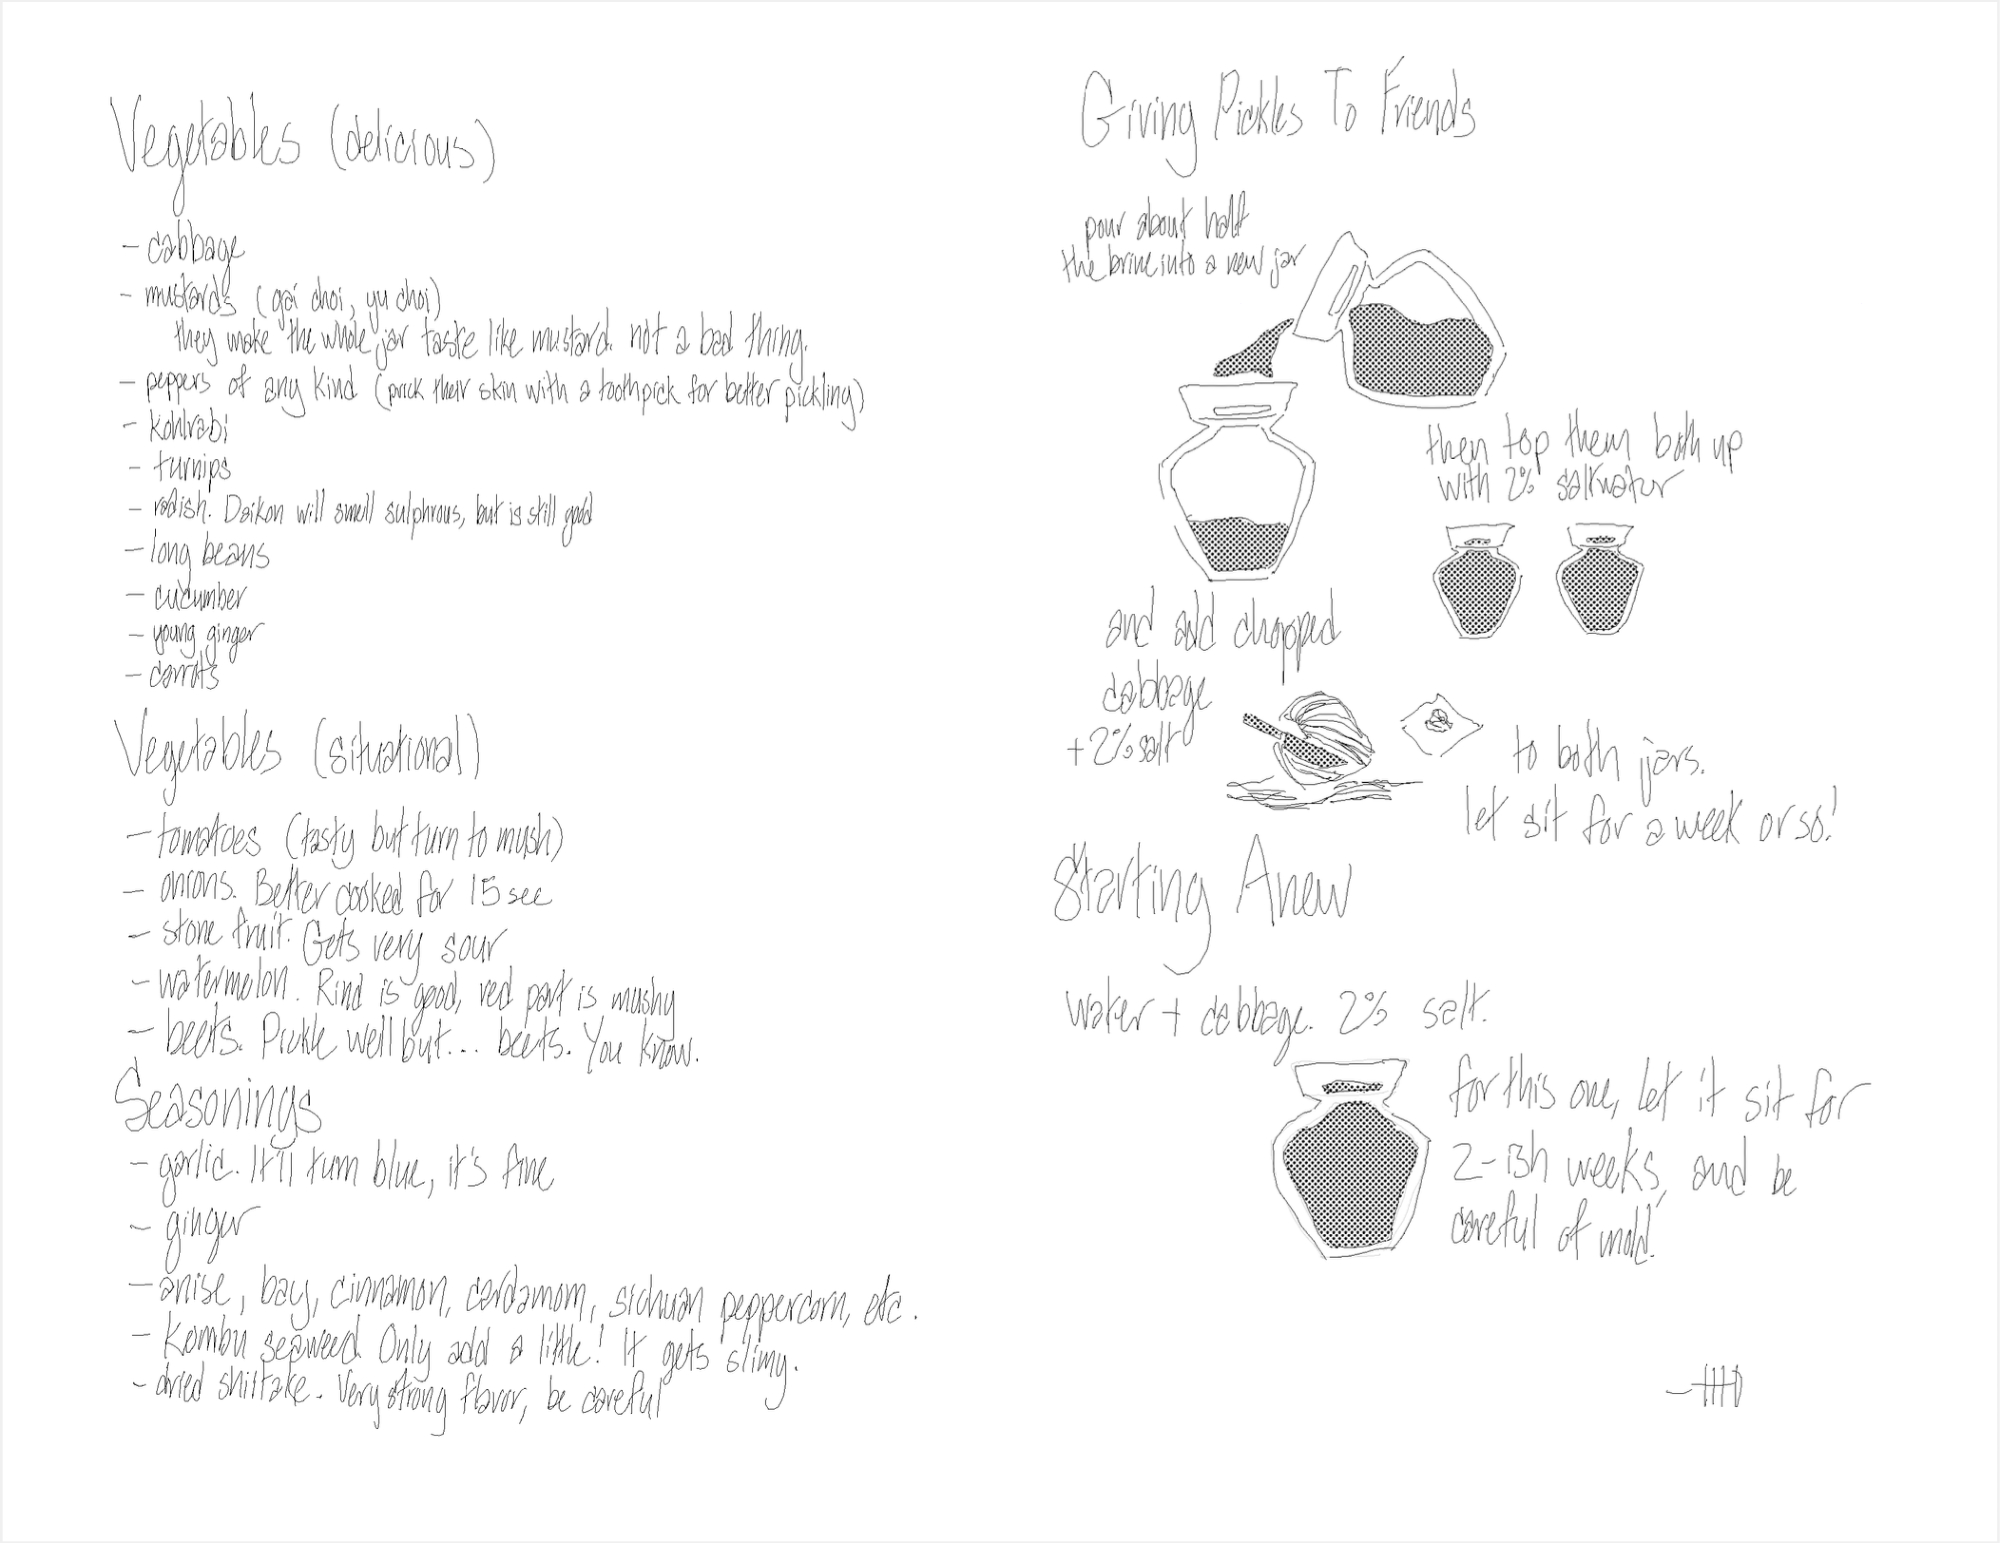 Vegetables (delicious)
- cabbage
- mustards (gai choi, yu choi)
they make the whole jar taste like mustard. not a bad thing.
- peppers of any kind (prick their skin with a toothpick for better pickling)
- kohlrabi
- turnips
- radish. Daikon will smell sulphrous, but is still good
- long beans
- cucumber
- young ginger
- carrots
Vegetables (situational)
- tomatoes (tasty but turn to mush)
- onions. Better cooked for 15 sec
- stone fruit. Gets very sour
- watermelon. Rind is good, red part is mushy
- beets. Pickle well but... beets. You know.
Seasonings
- garlic. It'll turn blue, it's fine
- ginger
- anise, bay, cinnamon, cardamom, sichuan peppercorn, etc.
- Kombu seaweed. Only add a little! It gets slimy.
- dried shiitake. Very strong flavor, be careful
Giving Pickles To Friends
pour about half
the brine into a new jar
then top them both up
with 2% saltwater
and add chopped
cabbage
+ 2% salt
to both jars.
let sit for a week or so!
Starting Anew
water + cabbage. 2% salt.
for this one, let it sit for
2-ish weeks, and be
careful of mold.